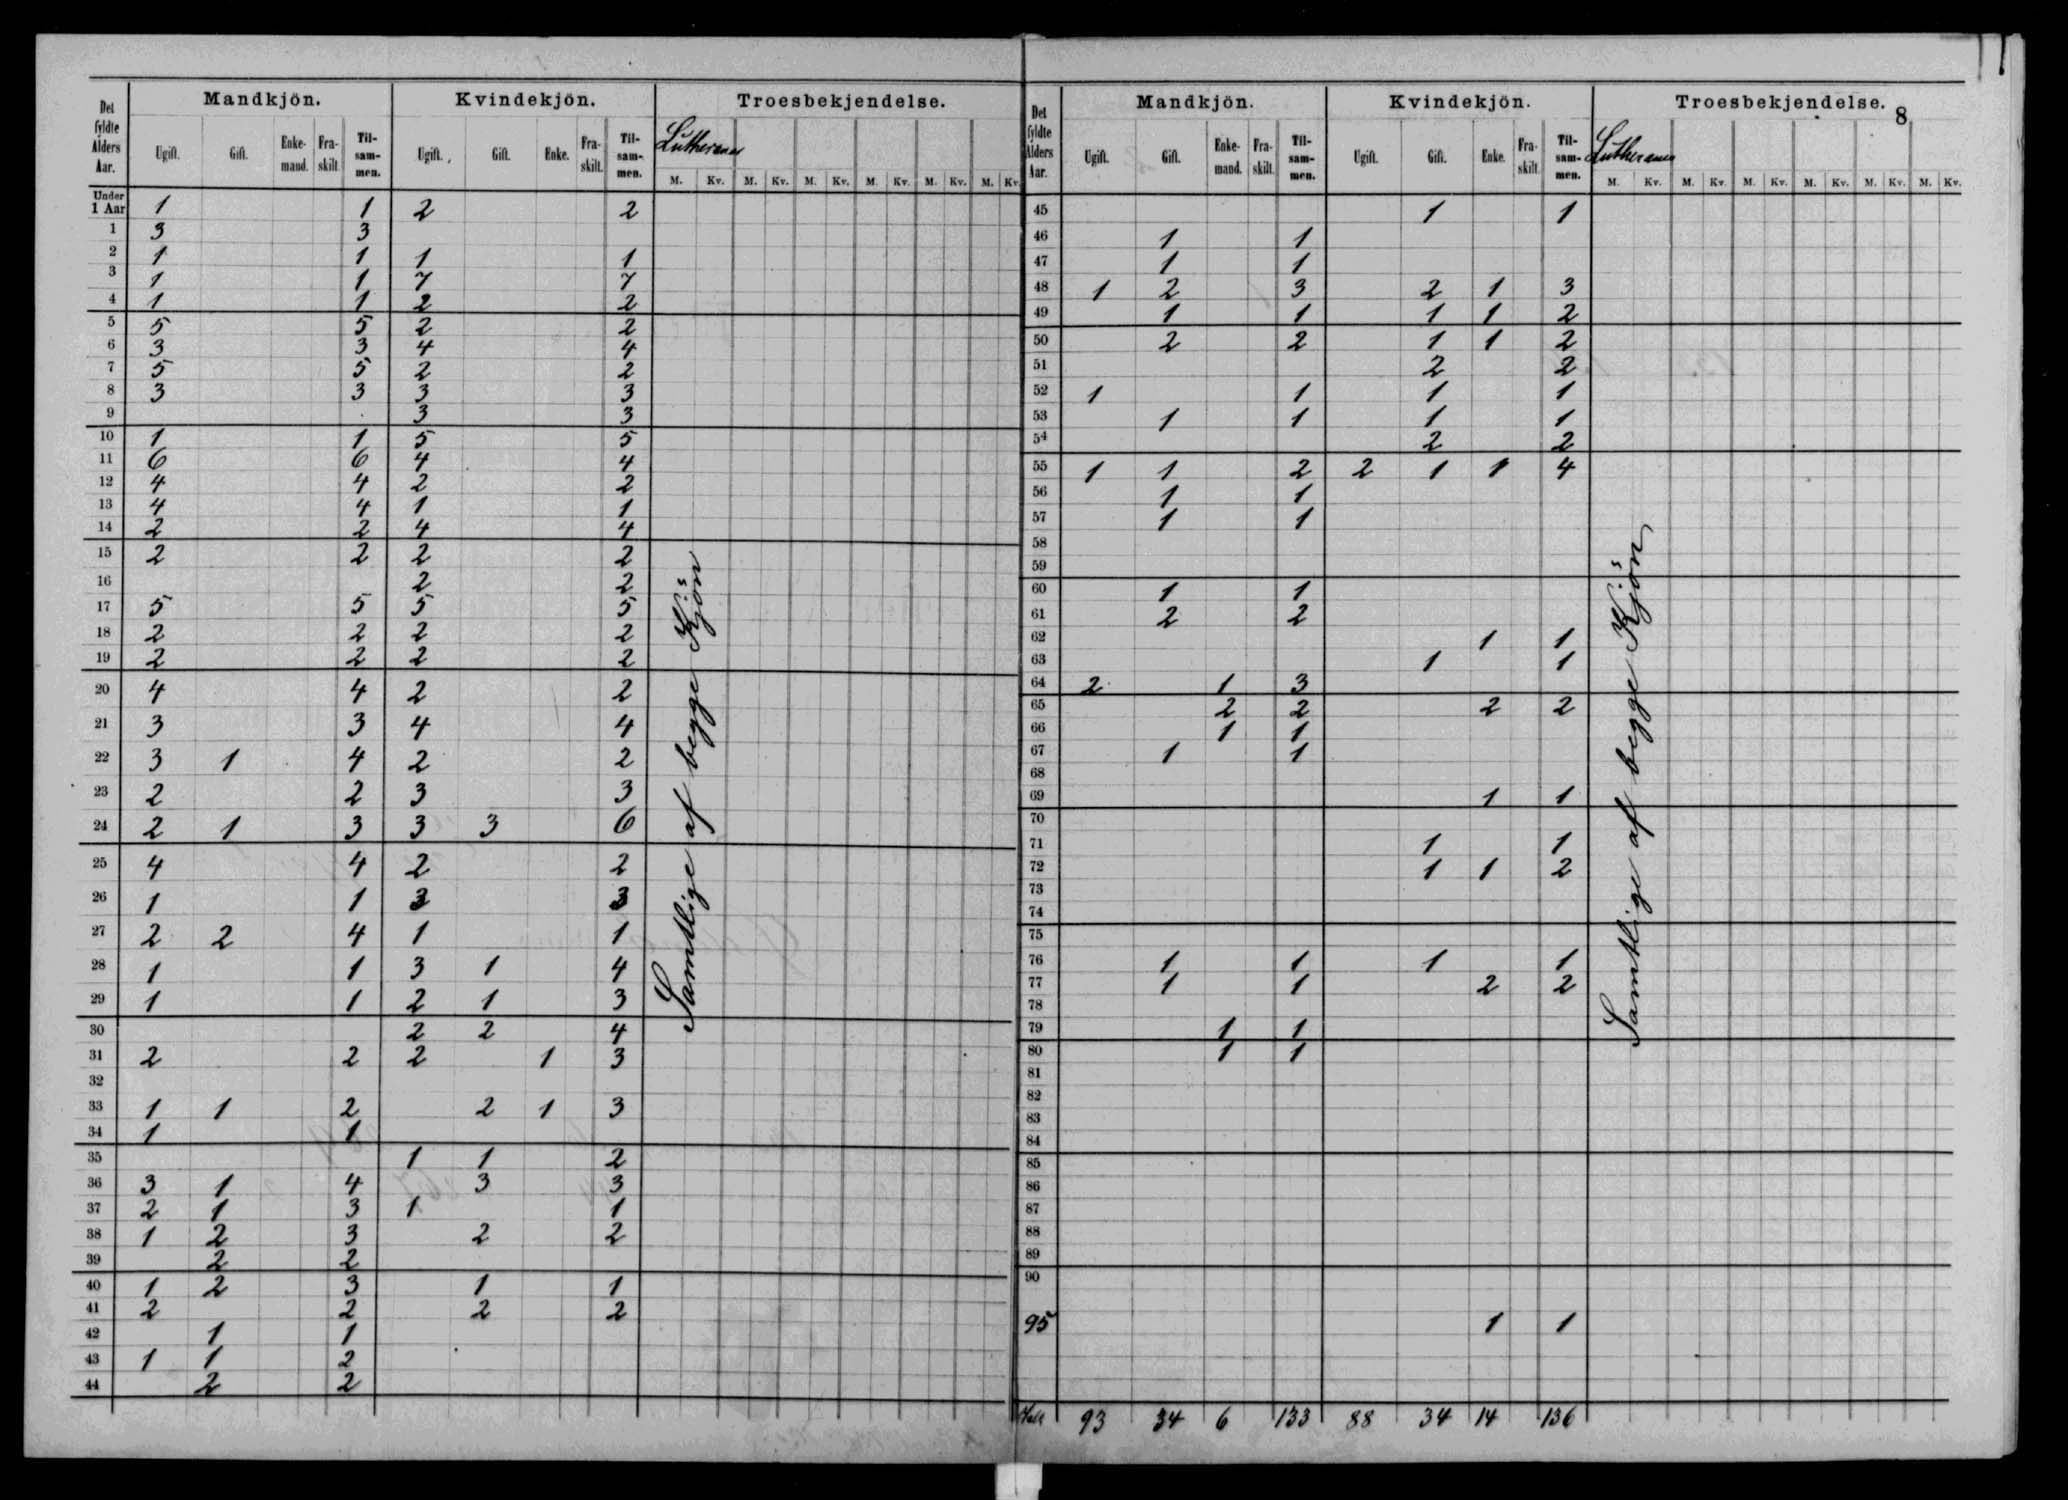 Det fyldte Alders Aar. Mandkjön. Kvindekjön. Troesbekjendelse.
Ugift. Gift. Enke-mand. Fra-skilt. Til-sam-men. Ugift. Gift. Enke. Fra-skilt. Til-sam-men. Lutheraner
M. Kv. M. Kv. M. Kv. M. Kv. M. Kv. M. Kv.
Under 1 Aar 1 1 2 2
1 3 3
2 1 1 1 1
3 1 1 7 7
4 1 1 2 2
5 5 5 2 2
6 3 3 4 4
7 5 5 2 2
8 3 3 3 3
9 3 3
10 1 1 5 5
11 6 6 4 4
12 4 4 2 2
13 4 4 1 1
14 2 2 4 4
15 2 2 2 2
16 2 2
17 5 5 5 5
18 2 2 2 2
19 2 2 2 2
20 4 4 2 2
21 3 3 4 4
22 3 1 4 2 2
23 2 2 3 3
24 2 1 3 3 3 6
25 4 4 2 2
26 1 1 3 3
27 2 2 4 1 1
28 1 1 3 1 4
29 1 1 2 1 3
30 2 2 4
31 2 2 2 1 3
32
33 1 1 2 2 1 3
34 1 1
35 1 1 2
36 3 1 4 3 3
37 2 1 3 1 1
38 1 2 3 2 2
39 2 2
40 1 2 3 1 1
41 2 2 2 2
42 1 1
43 1 1 2
44 2 2
Samtlige af begge Kjön
8
Det fyldte Alders Aar. Mandkjön. Kvindekjön. Troesbekjendelse.
Ugift. Gift. Enke-mand. Fra-skilt. Til-sam-men. Ugift. Gift. Enke. Fra-skilt. Til-sam-men. Lutheraner
M. Kv. M. Kv. M. Kv. M. Kv. M. Kv. M. Kv.
45 1 1
46 1 1
47 1 1
48 1 2 3 2 1 3
49 1 1 1 1 2
50 2 2 1 1 2
51 2 2
52 1 1 1 1
53 1 1 1 1
54 2 2
55 1 1 2 2 1 1 4
56 1 1
57 1 1
58
59
60 1 1
61 2 2
62 1 1
63 1 1
64 2 1 3
65 2 2 2 2
66 1 1
67 1 1
68
69 1 1
70
71 1 1
72 1 1 2
73
74
75
76 1 1 1 1
77 1 1 2 2
78
79 1 1
80 1 1
81
82
83
84
85
86
87
88
89
90
95 1 1
93 34 6 133 88 34 14 136
Samtlige af begge Kjön